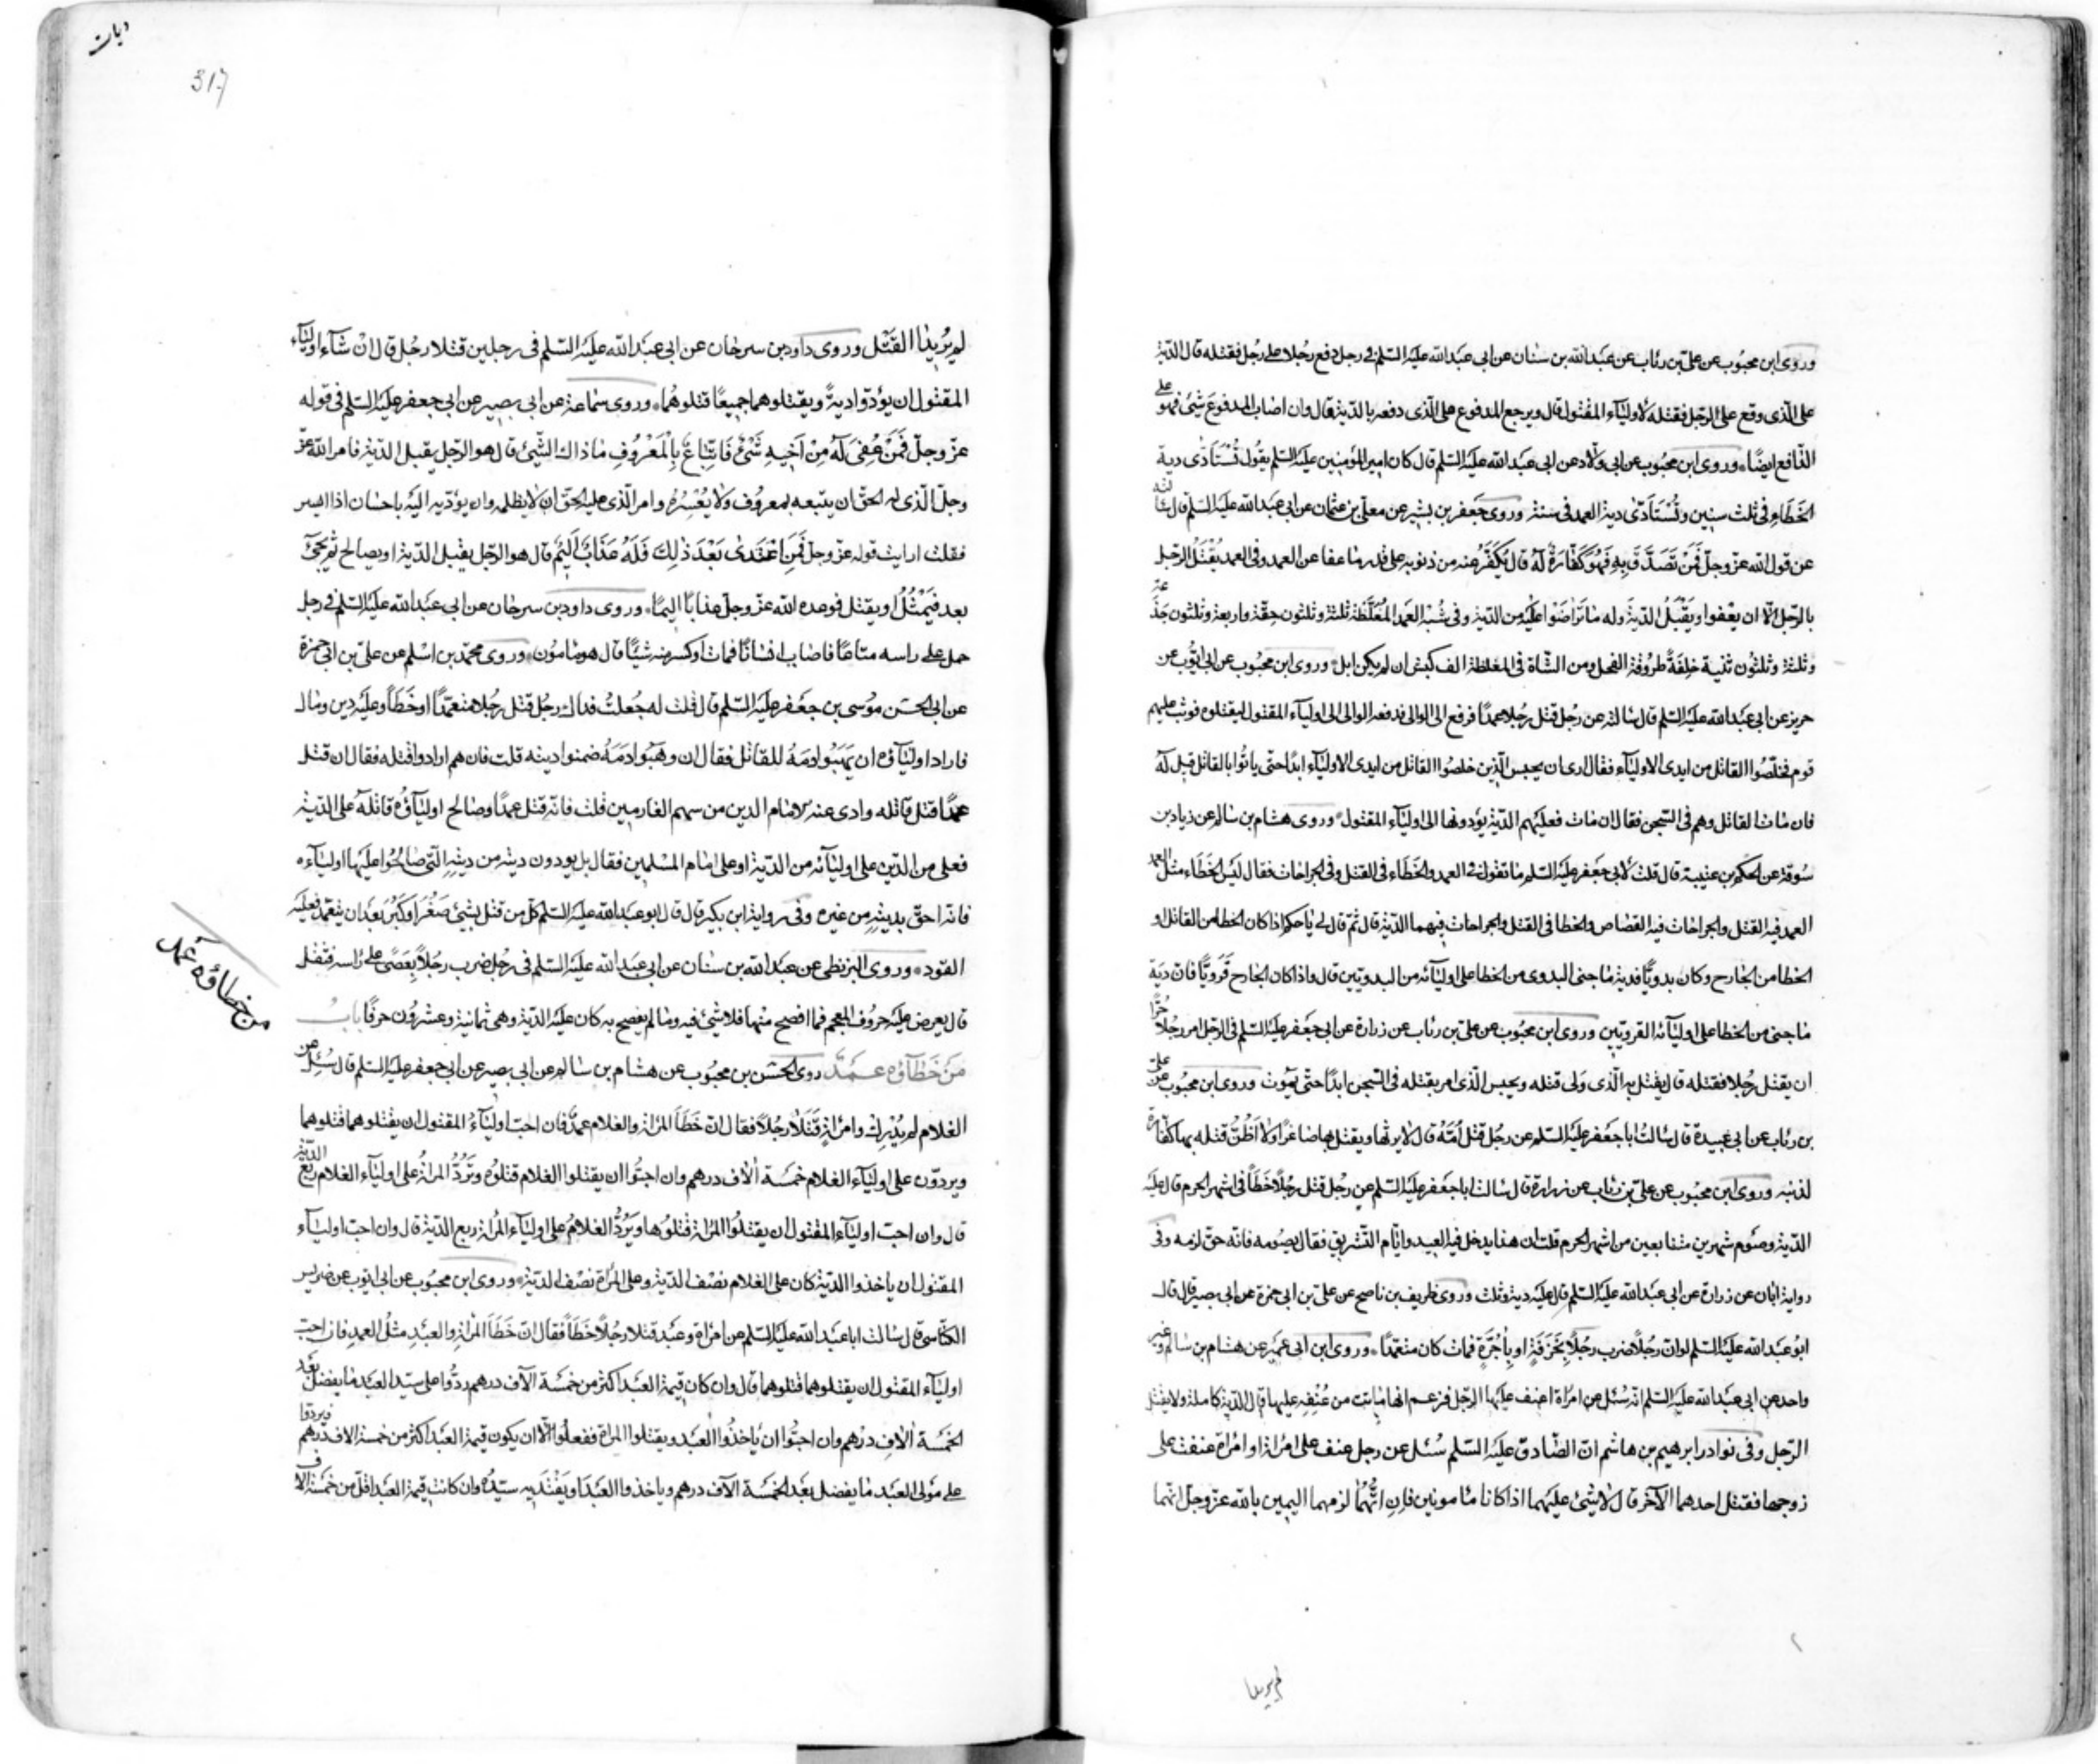 وروى ابن محبوب عن على بن رئاب عن عبد الله بن سنان عن ابى عبد الله عليه السلم فى رجل دفع رجلا على رجل فقتله قال الدية
على الذى وقع على الرجل فقتله لاولياء المقتول قال ويرجع المدفوع على الذى دفعه بالدية قال وان اصاب المدفوع شئ فهو على
الدافع ايضا وروى ابن محبوب عن ابى ولاد عن ابى عبد الله عليه السلم قال كان امير المؤمنين عليه السلم يقول تستادى دية
الخطاء فى ثلث سنين وتستادى دية العمد فى سنة وروى جعفر بن بشير عن معلى بن عثمان عن ابى عبد الله عليه السلم قال سالته
عن قول الله عز وجل فمن تصدق به فهو كفارة له قال يكفر عنه من ذنوبه على قدر ما عفا عن العمد وفى العمد يقتل الرجل
بالرجل الا ان يعفوا ويقبل الدية وله ما تراضوا عليه من الدية وفى شبه العمد المغلظة ثلثة وثلثون حقة واربعة وثلثون جذعة
وثلثة وثلثون ثنية خلفة طروقة الفحل ومن الشاة فى المغلظة الف كبش ان لم يكن ابل وروى ابن محبوب عن ابى ايوب عن
حريز عن ابى عبد الله عليه السلم قال سالته عن رجل قتل رجلا عمدا فرفع الى الوالى فدفعه الوالى الى اولياء المقتول ليقتلوه فوثب عليهم
قوم فخلصوا القاتل من ايدى الاولياء فقال ارى ان يحبس الذين خلصوا القاتل من ايدى الاولياء ابدا حتى ياتوا بالقاتل قيل له
فان مات القاتل وهم فى السجن فقال ان مات فعليهم الدية يؤدونها الى اولياء المقتول وروى هشام بن سالم عن زياد بن
سوقة عن الحكم بن عتيبة قال قلت لابى جعفر عليه السلم ما تقول فى العمد والخطاء فى القتل وفى الجراحات فقال ليس الخطاء مثل العمد
العمد فيه القتل والجراحات فيه القصاص والخطا فى القتل والجراحات فيهما الدية قال ثم قال لى يا حكم اذا كان الخطا من القاتل او
الخطا من الجارح وكان بدويا فدية ما جنى البدوى من الخطا على اوليائه من البدويين قال واذا كان الجارح قرويا فان دية
ما جنى من الخطا على اوليائه القرويين وروى ابن محبوب عن على بن رئاب عن زرارة عن ابى جعفر عليه السلم فى الرجل امر رجلا حرا
ان يقتل رجلا فقتله قال يقتل به الذى ولى قتله ويحبس الذى امر بقتله فى السجن ابدا حتى يموت وروى ابن محبوب عن على
بن رئاب عن ابى عبيدة قال سالت ابا جعفر عليه السلم عن رجل قتل امه قال لا يرثها ويقتل بها صاغرا ولا اظن قتله بها كفارة
لذنبه وروى ابن محبوب عن على بن رئاب عن زرارة قال سالت ابا جعفر عليه السلم عن رجل قتل رجلا خطأ فى اشهر الحرم قال عليه
الدية وصوم شهرين متتابعين من اشهر الحرم قلت ان هذا يدخل فيه العيد وايام التشريق فقال يصومه فانه حق لزمه وفى
رواية ابان عن زرارة عن ابى عبد الله عليه السلم قال عليه دية وثلث وروى ظريف بن ناصح عن على بن ابى حمزة عن ابى بصير قال قال
ابو عبد الله عليه السلم لو ان رجلا ضرب رجلا بخزفة او باجرة فمات كان متعمدا وروى ابن ابى عمير عن هشام بن سالم وغير
واحد عن ابى عبد الله عليه السلم انه سئل عن امراة اعنف عليها الرجل فزعم انها ماتت من عنفه عليها قال الدية كاملة ولا يقتل
الرجل وفى نوادر ابرهيم بن هاشم ان الصادق عليه السلم سئل عن رجل عنف على امراة او امراة عنفت على
زوجها فقتل احدهما الآخر قال لا شئ عليهما اذا كانا مامونين فان اتهما لزمهما اليمين بالله عز وجل انهما
لم يريدا
ديات
317
لم يريدا القتل وروى داود بن سرحان عن ابى عبد الله عليه السلم فى رجلين قتلا رجل قال ان شاء اولياء
المقتول ان يؤدوا دية ويقتلوهما جميعا قتلوهما وروى سماعة عن ابى بصير عن ابى جعفر عليه السلم فى قوله
عز وجل فمن عفى له من اخيه شئ فاتباع بالمعروف ما ذاك الشئ قال هو الرجل يقبل الدية فامر الله عز
وجل الذى له الحق ان يتبعه بمعروف ولا يعسره وامر الذى عليه الحق ان لا يظلمه وان يؤديه اليه باحسان اذا ايسر
فقلت ارايت قوله عز وجل فمن اعتدى بعد ذلك فله عذاب اليم قال هو الرجل يقبل الدية او يصالح ثم يجئ
بعد فيمثل او يقتل فوعده الله عز وجل عذابا اليما وروى داود بن سرحان عن ابى عبد الله عليه السلم فى رجل
حمل على راسه متاعا فاصاب انسانا فمات او كسر منه شيئا قال هو مامون وروى محمد بن اسلم عن على بن ابى حمزة
عن ابى الحسن موسى بن جعفر عليه السلم قال قلت له جعلت فداك رجل قتل رجلا متعمدا او خطأ وعليه دين ومال
فاراد اولياؤه ان يهبوا دمه للقاتل فقال ان وهبوا دمه ضمنوا دينه قلت فان هم ارادوا قتله فقال ان قتل
عمدا قتل قاتله وادى عنه الامام الدين من سهم الغارمين قلت فانه قتل عمدا وصالح اولياؤه قاتله على الدية
فعلى من الدين على اوليائه من الدية او على امام المسلمين فقال بل يودون دينه من ديته التى صالحوا عليها اولياءه
فانه احق بديته من غيره وفى رواية ابن بكير قال قال ابو عبد الله عليه السلم كل من قتل بشئ صغر او كبر بعد ان يتعمد فعليه
القود وروى البزنطى عن عبد الله بن سنان عن ابى عبد الله عليه السلم فى رجل ضرب رجلا بعصى على راسه فثقل
قال يعرض عليه حروف المعجم فما افصح منها فلا شئ فيه وما لم يفصح به كان عليه الدية وهى ثمانية وعشرون حرفا باب
من خطاؤه عمد روى الحسن بن محبوب عن هشام بن سالم عن ابى بصير عن ابى جعفر عليه السلم قال سئل عن
الغلام لم يدرك وامراة قتلا رجلا فقال ان خطأ المراة والغلام عمد فان احب اولياء المقتول ان يقتلوهما قتلوهما
ويردون على اولياء الغلام خمسة الاف درهم وان احبوا ان يقتلوا الغلام قتلوه وترد المراة على اولياء الغلام ربع الدية
قال وان احب اولياء المقتول ان يقتلوا المراة قتلوها ويرد الغلام على اولياء المراة ربع الدية قال وان احب اولياء
المقتول ان ياخذوا الدية كان على الغلام نصف الدية وعلى المراة نصف الدية وروى ابن محبوب عن ابى ايوب عن ضريس
الكناسى قال سالت ابا عبد الله عليه السلم عن امراة وعبد قتلا رجلا خطأ فقال ان خطأ المراة والعبد مثل العمد فان احب
اولياء المقتول ان يقتلوهما قتلوهما قال وان كان قيمة العبد اكثر من خمسة الآف درهم ردوا على سيد العبد ما يفضل بعد
الخمسة الاف درهم وان احبوا ان ياخذوا العبد ويقتلوا المراة ففعلوا الا ان يكون قيمة العبد اكثر من خمسة الاف درهم فيردوا
على مولى العبد ما يفضل بعد الخمسة الآف درهم وياخذوا العبد او يفتديه سيده وان كانت قيمة العبد اقل من خمسة الاف
من خطاؤه عمد